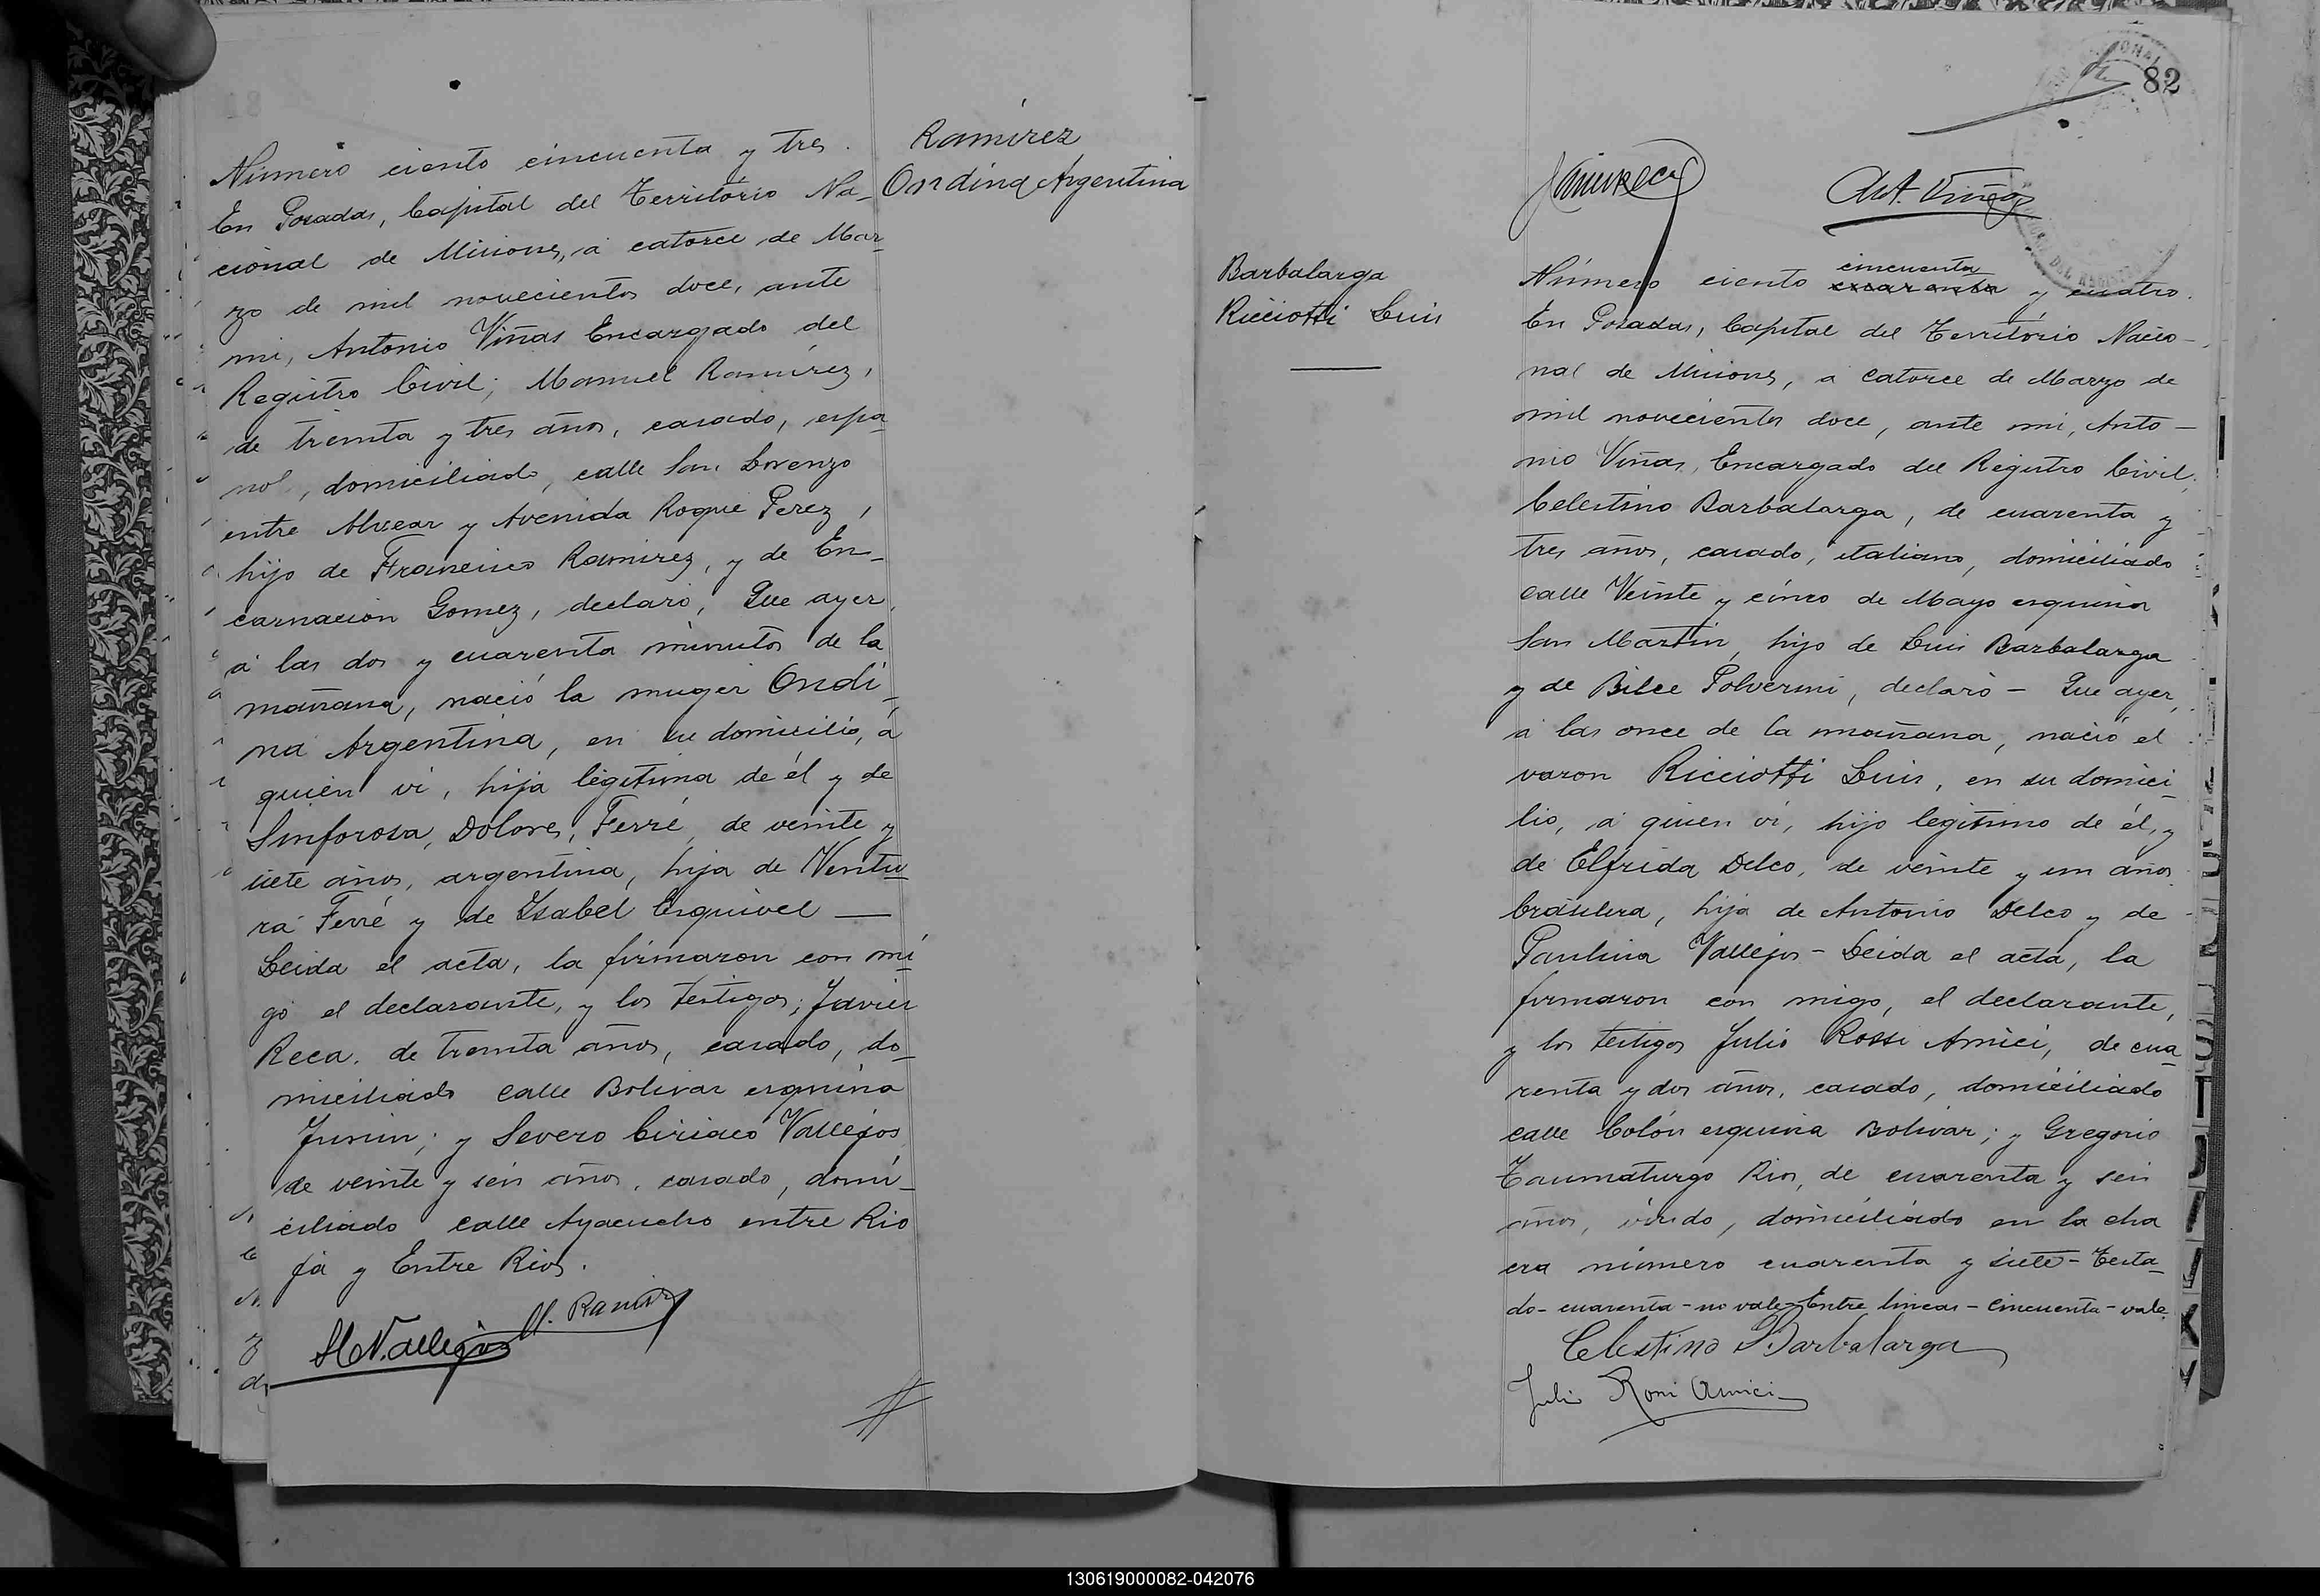 Ramirez
Ondina Argentina
Número ciento cincuenta y tres.
En Posadas, Capital del Territorio Na-
cional de Misiones, á catorce de Mar-
zo de mil novecientos doce, ante
mi, Antonio Viñas Encargado del
Registro Civil; Manuel Ramirez,
de treinta y tres años, casado, espa-
ñol, domiciliado, calle San Lorenzo
entre Alvear y Avenida Roque Perez,
hijo de Francisco Ramirez, y de En-
carnación Gomez, declaró, Que ayer,
á las dos y cuarenta minutos de la
mañana, nació la muger Ondi-
na Argentina, en su domicilio, á
quien vi, hija legitima de él y de
Sinforosa, Dolores, Ferré, de veinte y
siete años, argentina, hija de Ventu-
ra Ferré y de Isabel Esquivel —
Leida el acta, la firmaron con mi-
go el declarante, y los testigos; Javier
Reca, de treinta años, casado, do-
miciliado calle Bolivar esquina
Junin; y Severo Ciriaco Vallejos
de veinte y seis años, casado, domi-
ciliado calle Ayacucho entre Rio
ja y Entre Rios.
M. Ramirez
Vallejos
82
Ant. Viñas
Barbalarga
Ricciotti Luis
cincuenta
Número ciento cuarenta y cuatro.
En Posadas, Capital del Territorio Nacio-
nal de Misiones, á catorce de Marzo de
mil novecientos doce, ante mi, Anto-
nio Viñas, Encargado del Registro Civil,
Celestino Barbalarga, de cuarenta y
tres años, casado, italiano, domiciliado
calle Veinte y cinco de Mayo esquina
San Martin, hijo de Luis Barbalarga
y de Bilce Polverini, declaró - Que ayer,
á las once de la mañana, nació el
varon Ricciotti Luis, en su domici-
lio, á quien vi, hijo legitimo de él, y
de Elfrida Delco, de veinte y un años
brasilera, hija de Antonio Delco y de
Paulina Vallejos - Leida el acta, la
firmaron con migo, el declarante,
y los testigos Julio Rossi Amici, de cua-
renta y dos años, casado, domiciliado
calle Colón esquina Bolivar; y Gregorio
Taumaturgo Rios, de cuarenta y seis
años, viudo, domiciliado en la cha
cra número cuarenta y siete - Testa-
do - cuarenta - no vale - Entre lineas - cincuenta - vale.
Celestino Barbalarga
Julio Rossi Amici
130619000082-042076